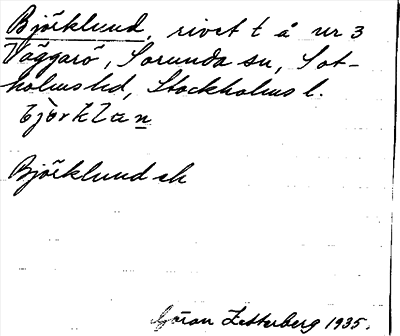 Björklund, rivet t å nr 3
Väggarö, Sorunda sn, Sot-
holms hd, Stockholms l.
bjørklan
Björklund ek
Göran Zetterberg 1935.